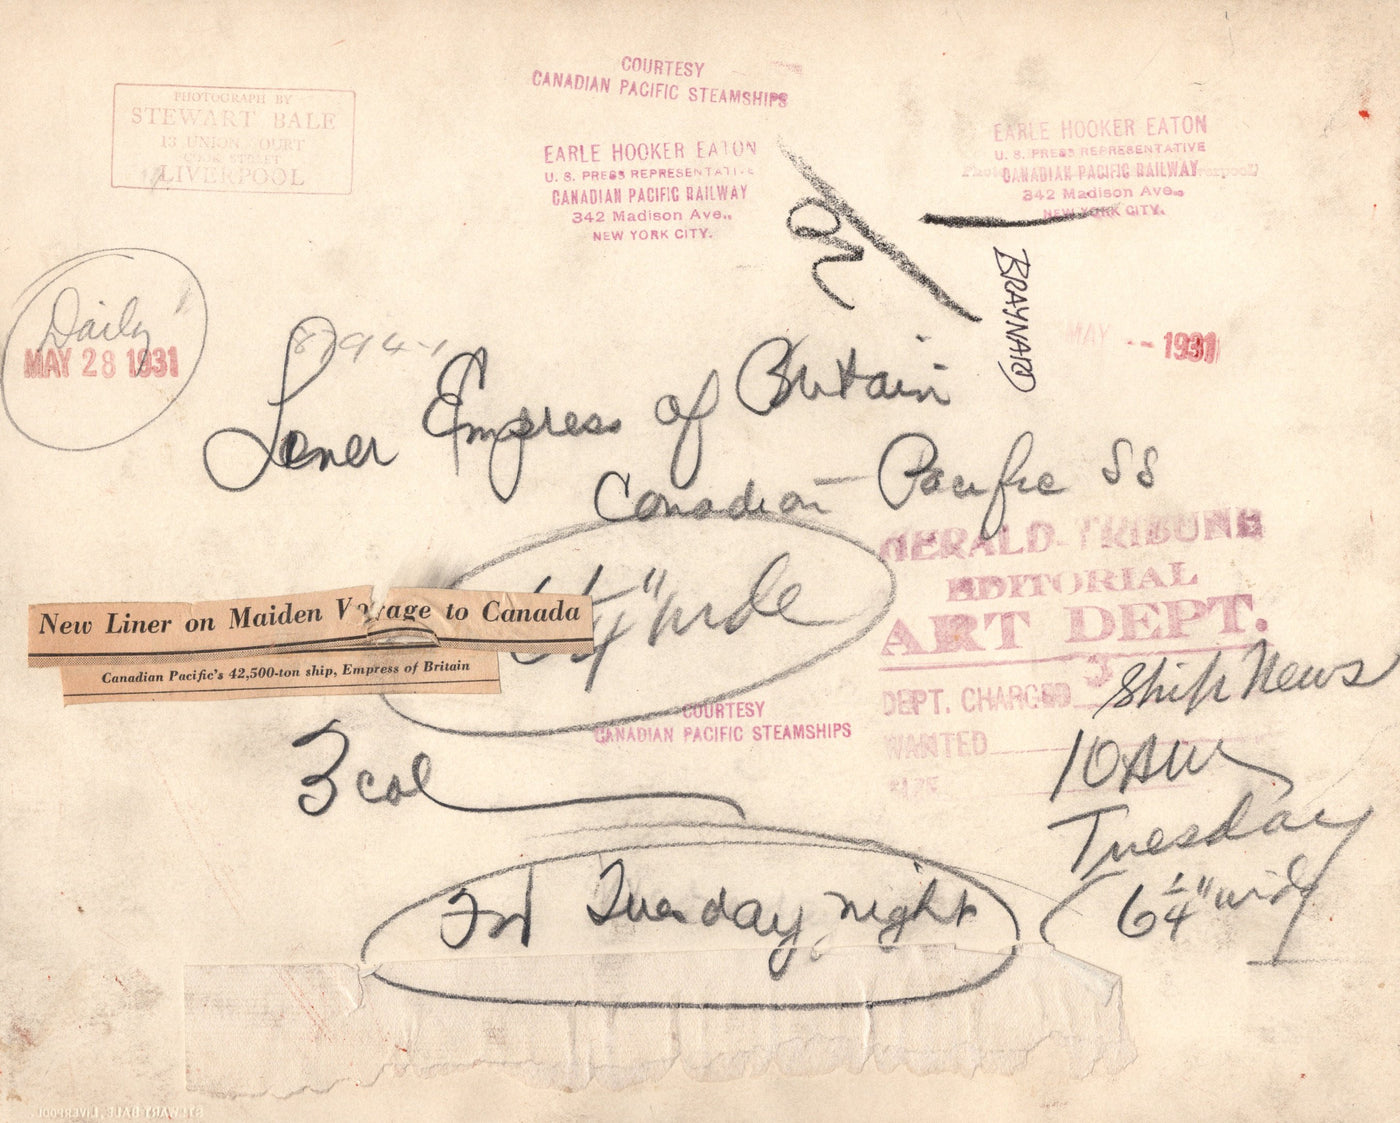 COURTESY
CANADIAN PACIFIC STEAMSHIPS
PHOTOGRAPH BY
STEWART BALE
13 UNION COURT
COOK STREET
LIVERPOOL
EARLE HOOKER EATON
U. S. PRESS REPRESENTATIVE
CANADIAN PACIFIC RAILWAY
342 Madison Ave.,
NEW YORK CITY.
EARLE HOOKER EATON
U. S. PRESS REPRESENTATIVE
CANADIAN PACIFIC RAILWAY
342 Madison Ave.,
NEW YORK CITY.
BRAYNARD
Daily
MAY 28 1931
MAY -- 1931
Liner Empress of Britain
Canadian Pacific SS
HERALD-TRIBUNE
EDITORIAL
ART DEPT.
6 1/4" wide
New Liner on Maiden Voyage to Canada
Canadian Pacific's 42,500-ton ship, Empress of Britain
DEPT. CHARGED Ship News
COURTESY
CANADIAN PACIFIC STEAMSHIPS
WANTED 10 AM
SIZE
Tuesday
3 col
6 1/4" wide
For Tuesday night
STEWART BALE, LIVERPOOL.